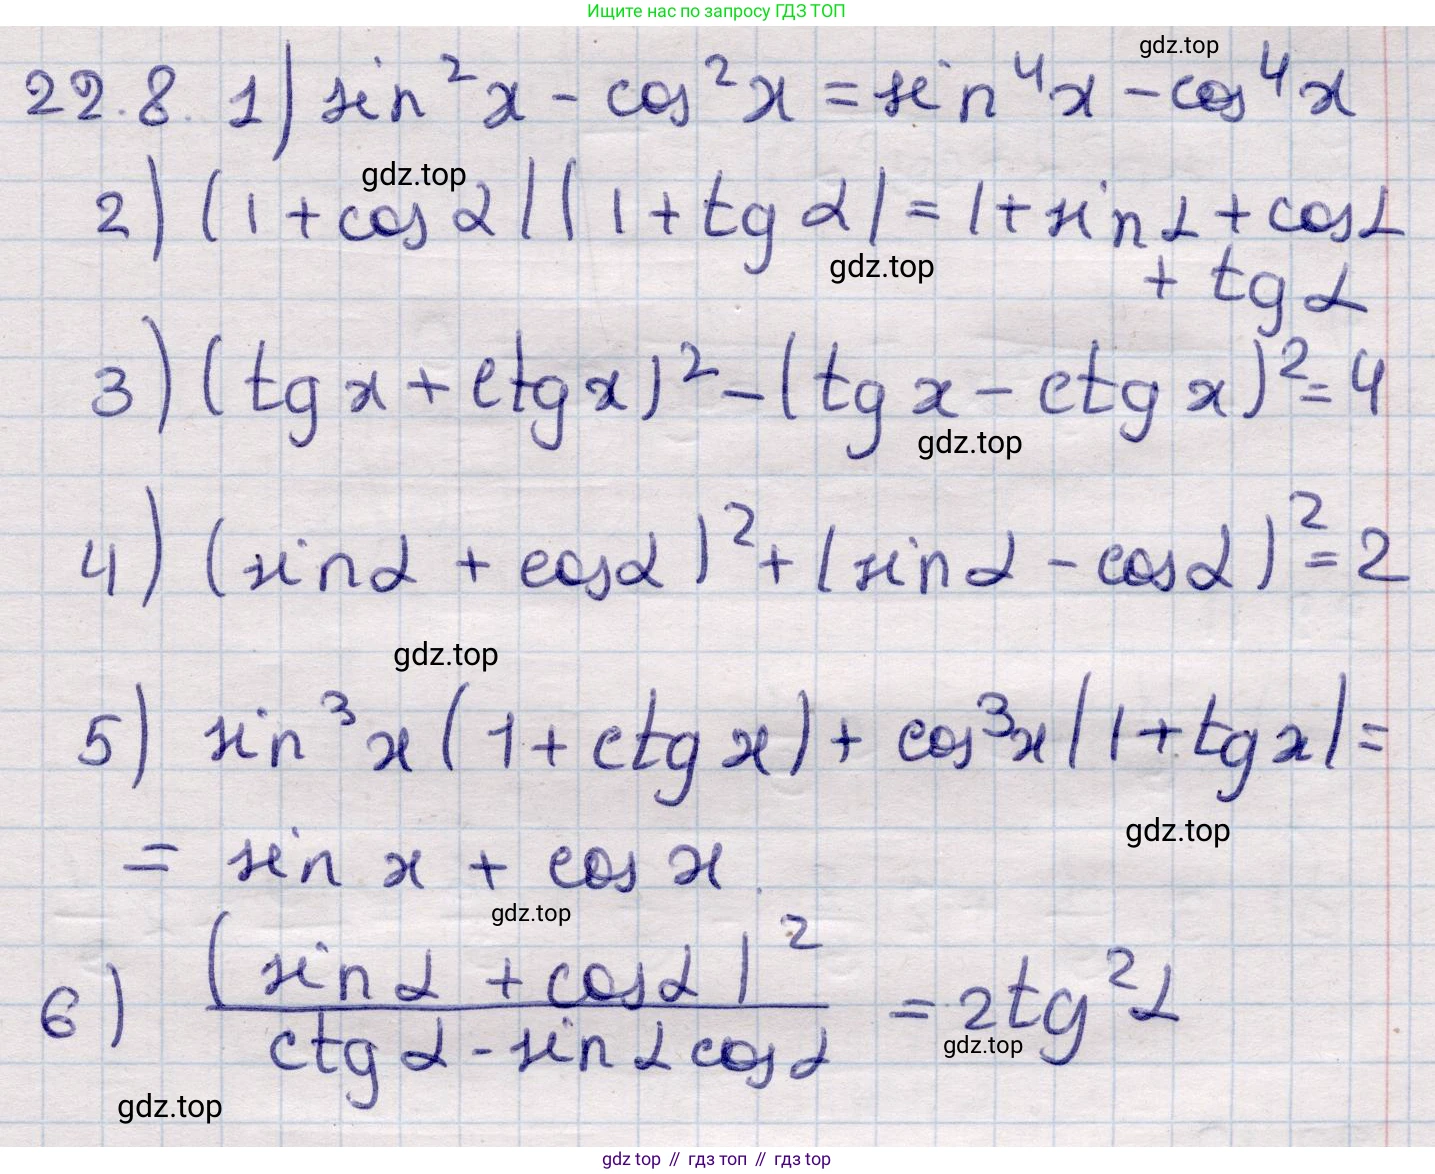 Ищите нас по запросу ГДЗ ТОП
gdz.top
22.8. 1) sin²x - cos²x = sin⁴x - cos⁴x
gdz.top
2) (1 + cos α)(1 + tg α) = 1 + sin α + cos α
gdz.top
+ tg α
3) (tg x + ctg x)² - (tg x - ctg x)² = 4
gdz.top
4) (sin α + cos α)² + (sin α - cos α)² = 2
gdz.top
5) sin³x (1 + ctg x) + cos³x (1 + tg x) =
gdz.top
= sin x + cos x.
gdz.top
6) (sin α + cos α)²
ctg α - sin α cos α
= 2tg²α
gdz.top
gdz.top
gdz top // гдз топ // гдз top